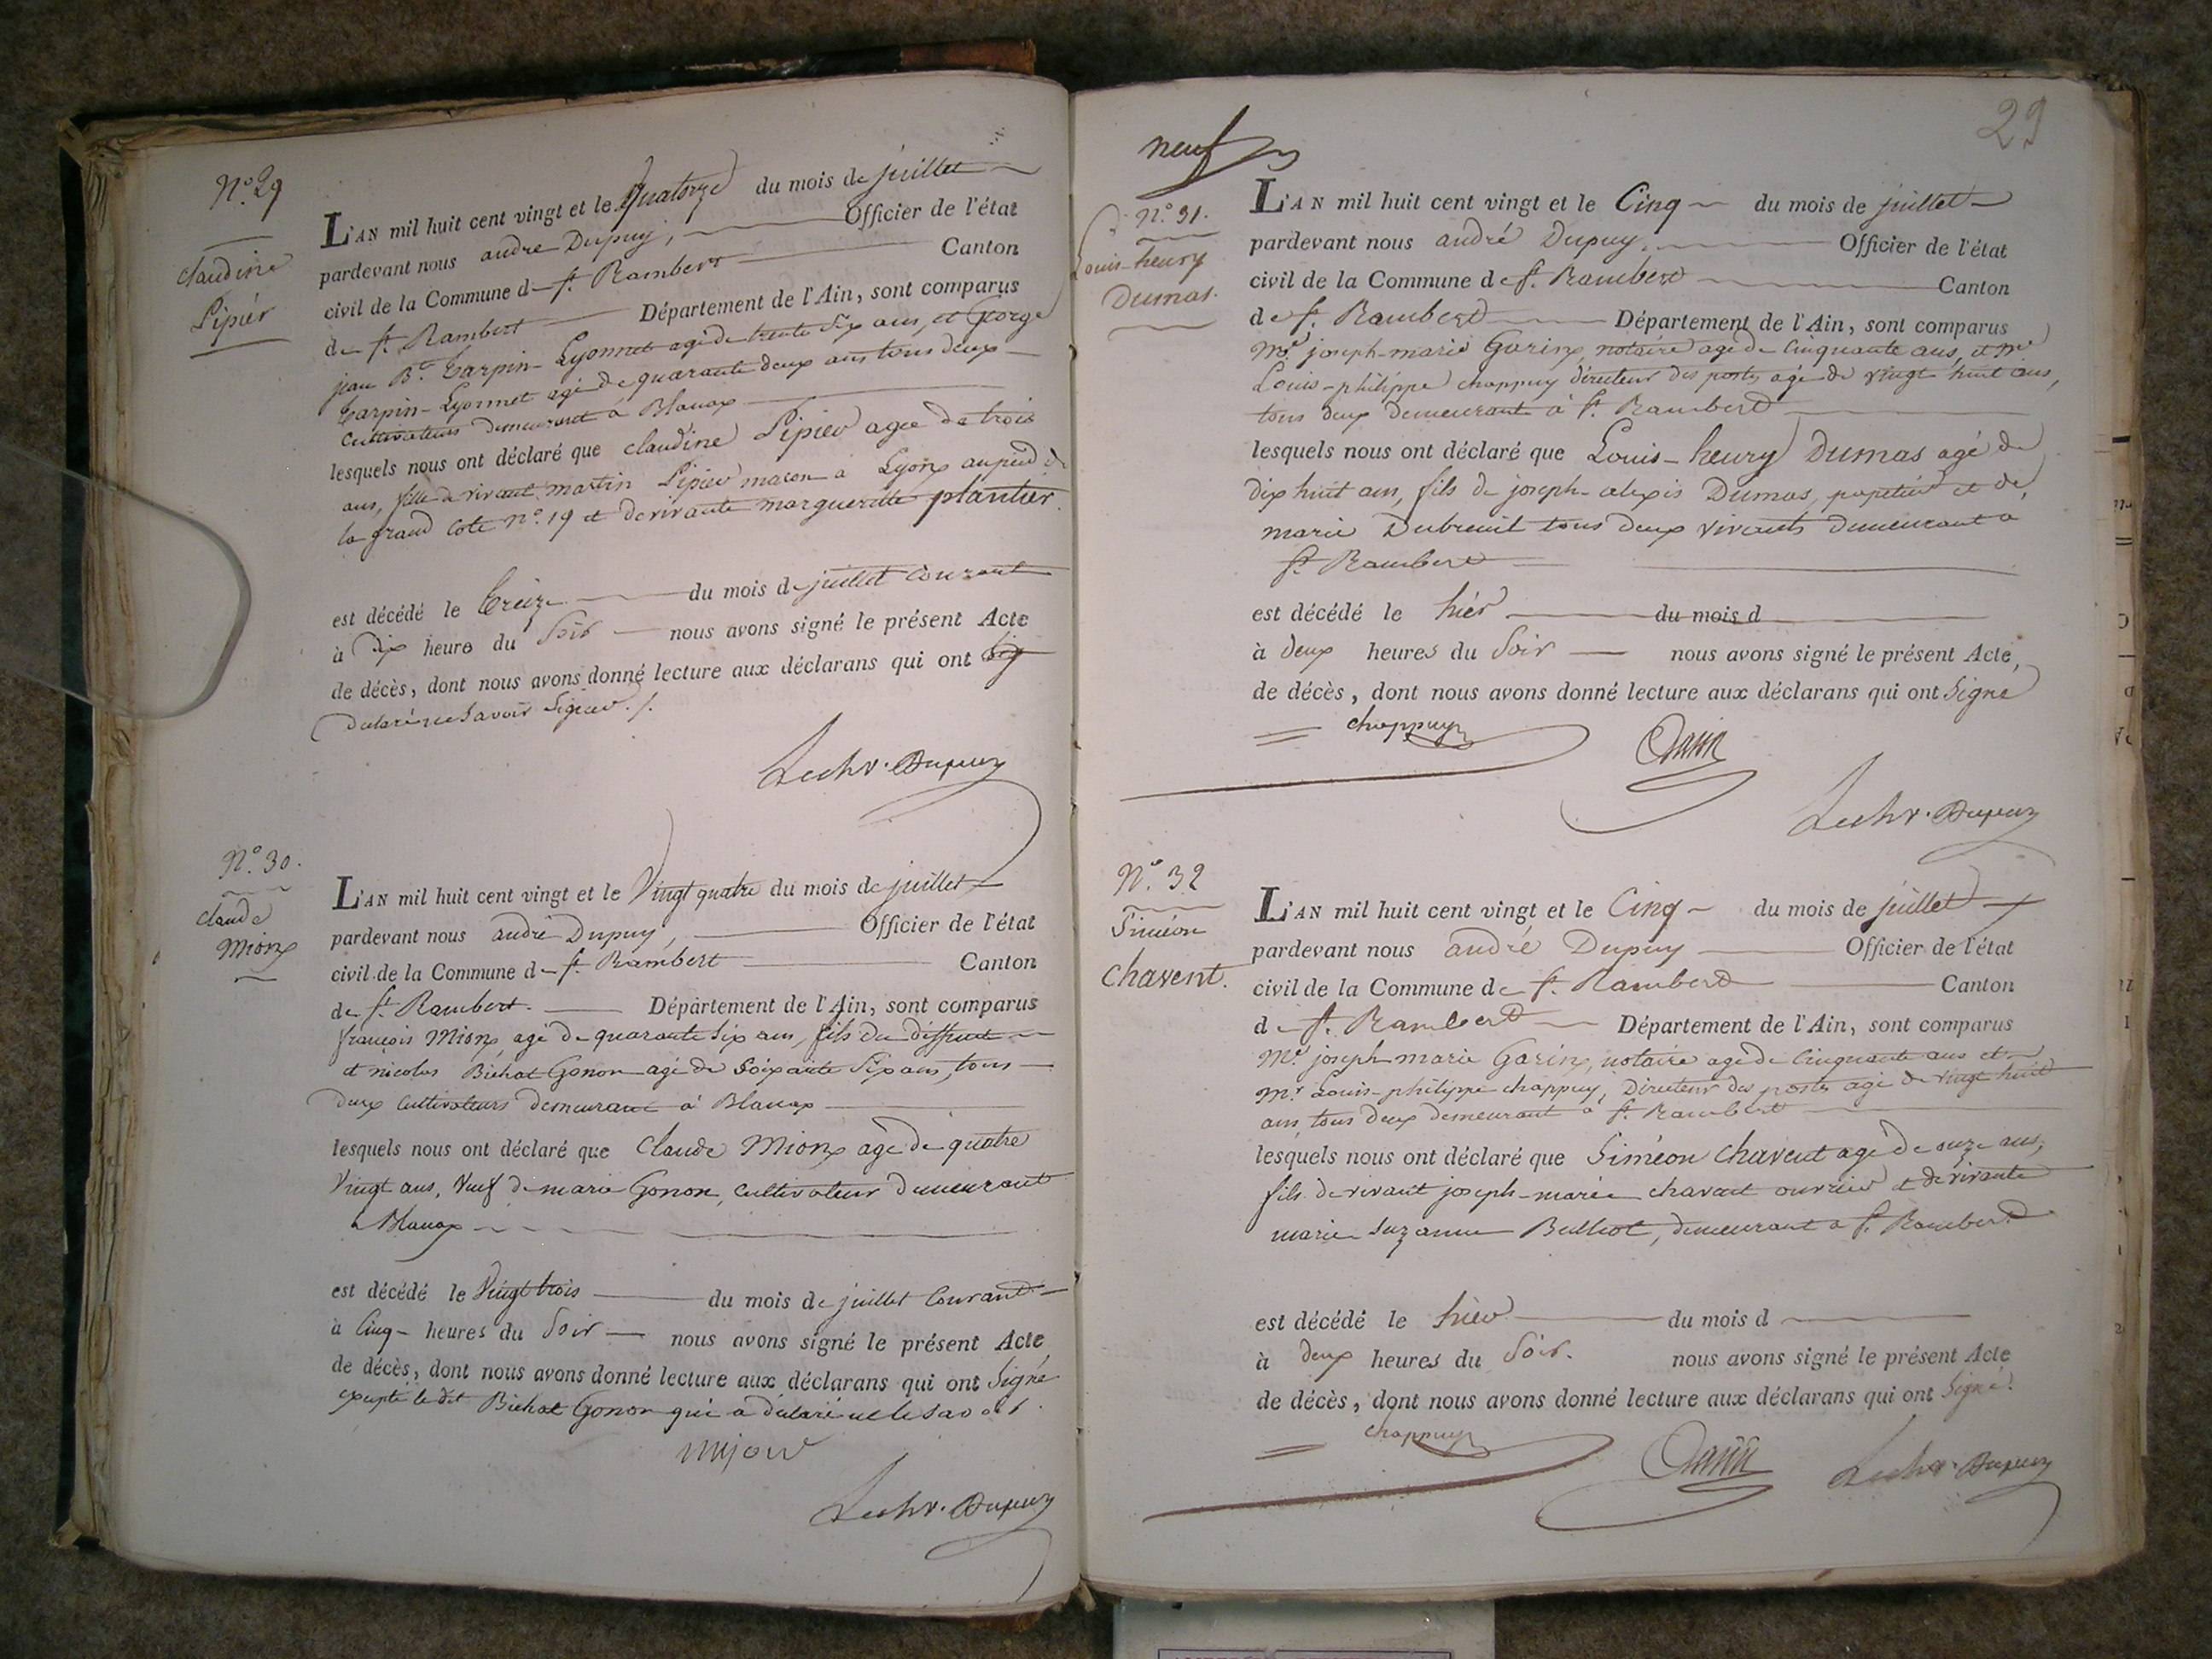 N.° 29
claudine
Pipier
L'AN mil huit cent vingt et le quatorze du mois de juillet
pardevant nous andre Dupuy, Officier de l'état
civil de la Commune de St. Rambert Canton
de St. Rambert Département de l'Ain, sont comparus
jean Bte. Tarpin-Lyonnet agé de trente six ans, et George
Tarpin-Lyonnet agé de quarante deux ans tous deux
cultivateurs demeurant à Blanax
lesquels nous ont déclaré que claudine Pipier agée de trois
ans, fille de vivant martin Pipier maçon à Lyon au pied de
la grand cote n.° 19 et de vivante marguerite plantier.
est décédé le treize du mois de juillet courant
à dix heure du soir nous avons signé le présent Acte
de décès, dont nous avons donné lecture aux déclarans qui ont sig
declaré ne savoir signer ./.
Dupuy
N.° 30.
claude
Mion
L'AN mil huit cent vingt et le vingt quatre du mois de juillet
pardevant nous andré Dupuy, Officier de l'état
civil de la Commune de St. Rambert Canton
de St. Rambert. Département de l'Ain, sont comparus
françois Mion, agé de quarante six ans, fils du diffunt
et nicolas Bichat Gonon agé de soixante six ans, tous
deux cultivateurs demeurant à Blanax
lesquels nous ont déclaré que Claude Mion agé de quatre
vingt ans, veuf de marie Gonon, cultivateur demeurant
à Blanax
est décédé le vingt trois du mois de juillet courant
à cinq heures du soir nous avons signé le présent Acte
de décès, dont nous avons donné lecture aux déclarans qui ont signé
excepté le dit Bichat Gonon qui a declaré ne le savoir.
mijon
Dupuy
29
neuf
N.° 31.
Louis-henry
Dumas.
L'AN mil huit cent vingt et le Cinq du mois de juillet
pardevant nous andré Dupuy, Officier de l'état
civil de la Commune de St. Rambert Canton
de St. Rambert Département de l'Ain, sont comparus
Me. joseph-marie Garin, notaire agé de cinquante ans, et mr
Louis-philippe chappuy directeur des postes agé de vingt huit ans,
tous deux demeurant à St. Rambert
lesquels nous ont déclaré que Louis-henry Dumas agé de
dix huit ans, fils de joseph-alexis Dumas, papetier et de
marie Dubreuil tous deux vivants demeurant à
St. Rambert
est décédé le hier du mois d
à deux heures du soir nous avons signé le présent Acte,
de décès, dont nous avons donné lecture aux déclarans qui ont signé
chappuy Garin
Dupuy
N.° 32
Siméon
chavent.
L'AN mil huit cent vingt et le Cinq du mois de juillet
pardevant nous andré Dupuy Officier de l'état
civil de la Commune de St. Rambert Canton
de St. Rambert Département de l'Ain, sont comparus
Me. joseph marie Garin, notaire agé de cinquante ans et
mr. Louis-philippe chappuy, Directeur des postes agé de vingt huit
ans, tous deux demeurant à St. Rambert
lesquels nous ont déclaré que Siméon chavent agé de onze ans,
fils de vivant joseph-marie chavent ouvrier et de vivante
marie suzanne Bulliot, demeurant à St. Rambert
est décédé le hier du mois d
à deux heures du soir. nous avons signé le présent Acte
de décès, dont nous avons donné lecture aux déclarans qui ont signé.
chappuy Garin Dupuy